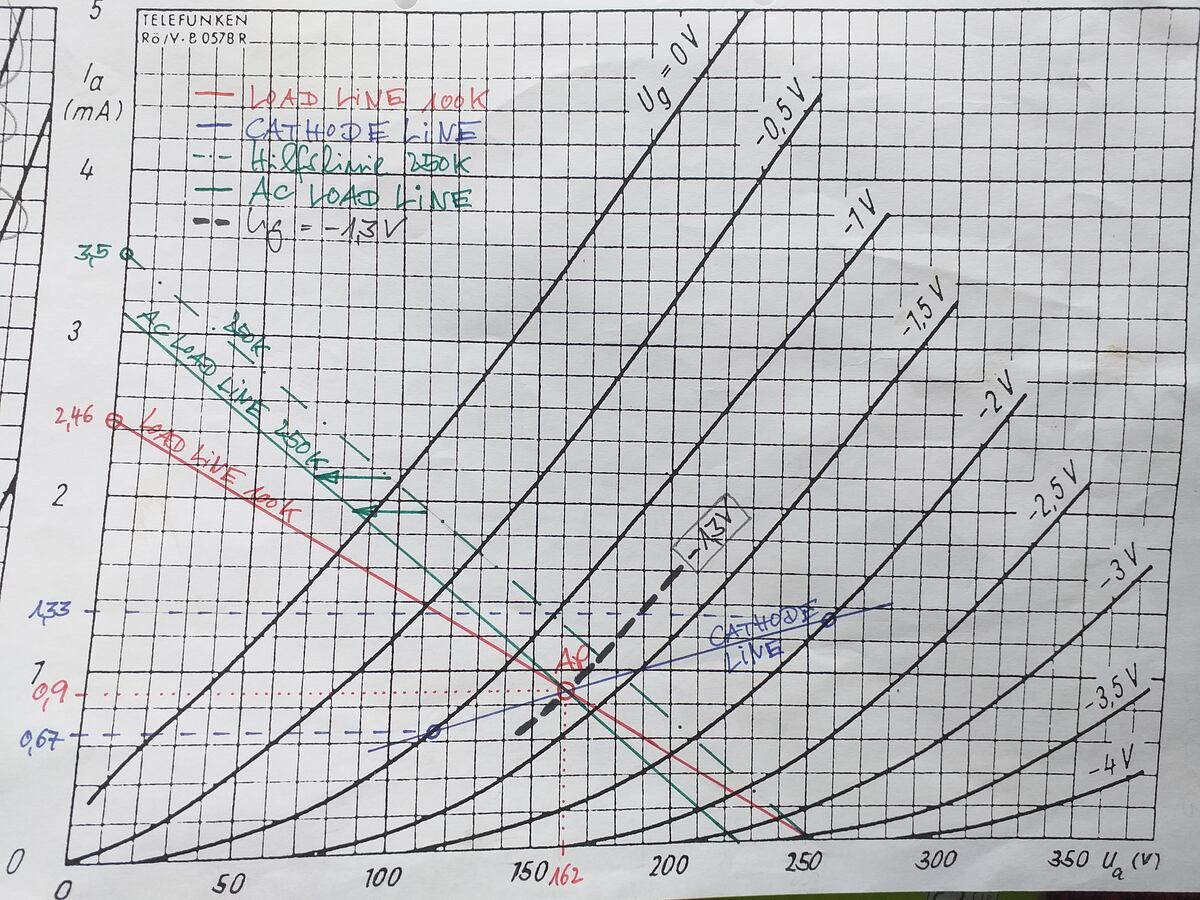 5
TELEFUNKEN
Rö/V·B 0578 R
Ia
(mA)
Ug = 0V
-0,5V
LOAD LINE 100K
CATHODE LINE
Hilfslinie 250K
AC LOAD LINE
Ug = -1,3V
4
-1V
3,5
-1,5V
3
250K
AC LOAD LINE 250K
-2V
2,46
LOAD LINE 100K
-2,5V
2
-1,3V
-3V
1,33
CATHODE
LINE
AP
1
0,9
-3,5V
0,67
-4V
0
0
50
100
150
162
200
250
300
350
Ua (V)